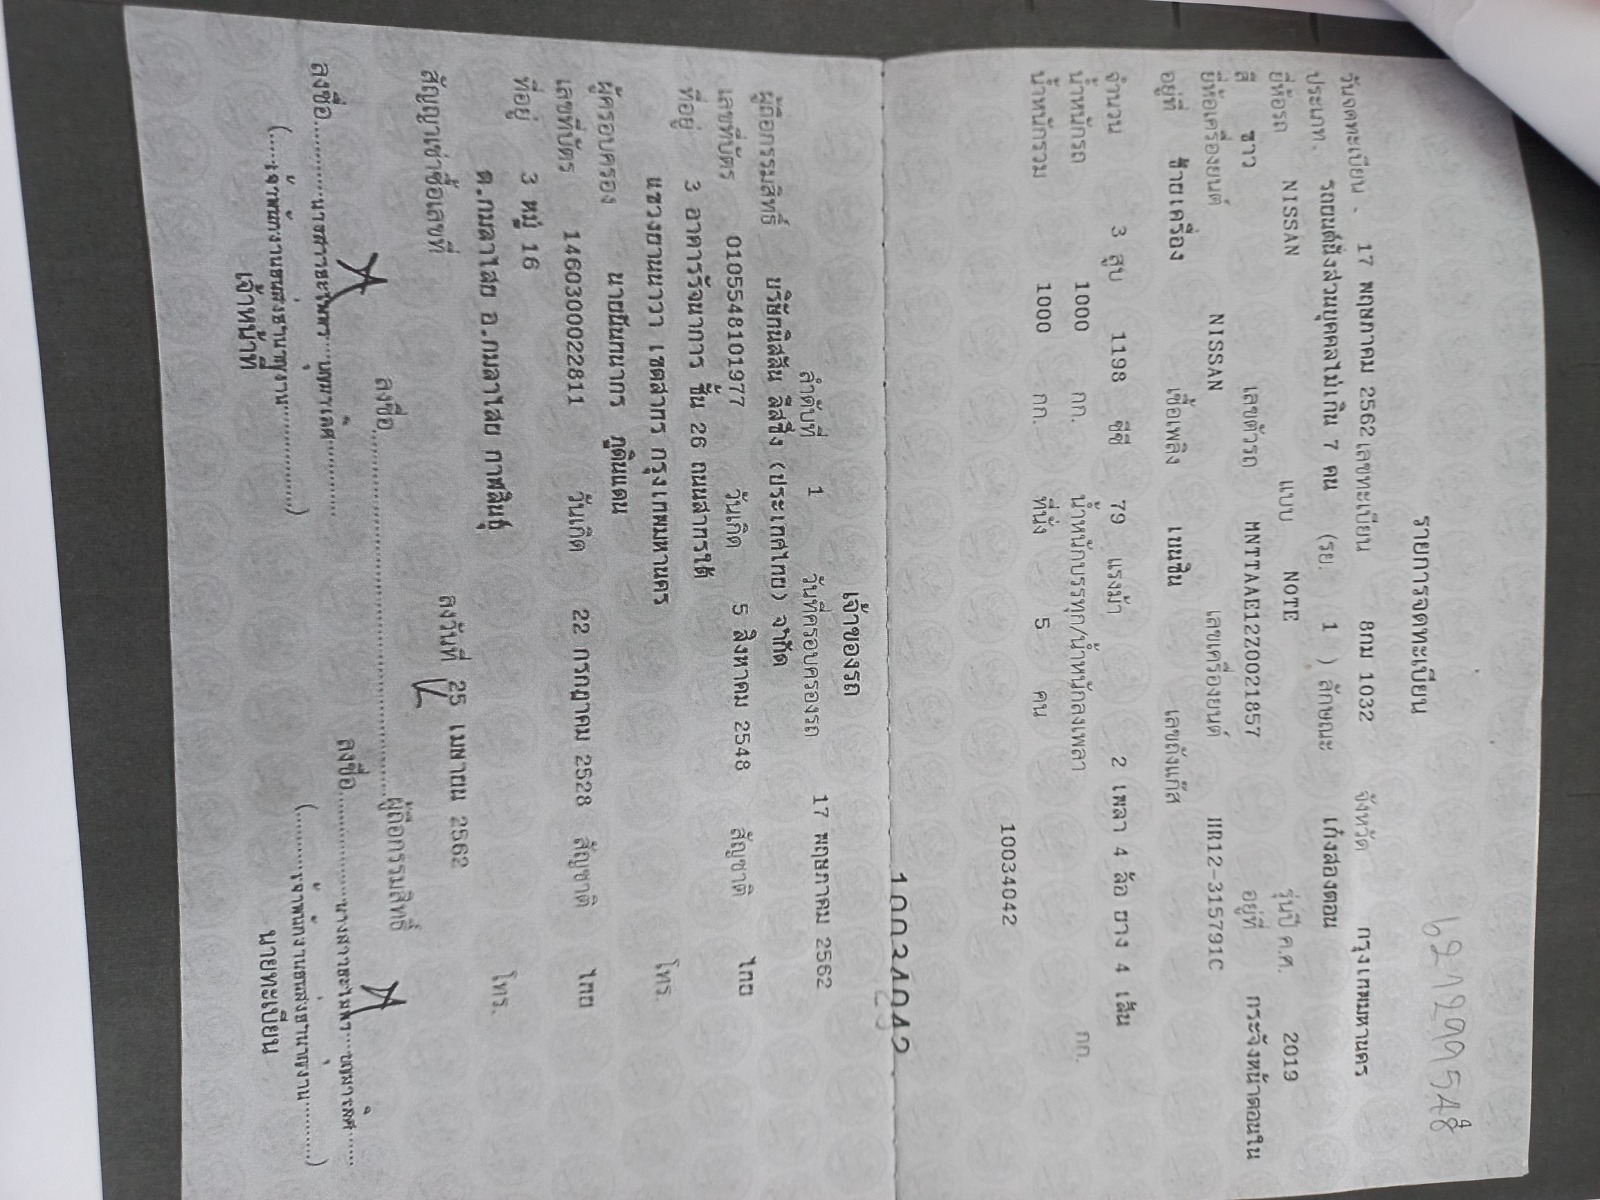 621299548
รายการจดทะเบียน
วันจดทะเบียน 17 พฤษภาคม 2562 เลขทะเบียน 8กม 1032 จังหวัด กรุงเทพมหานคร
ประเภท รถยนต์นั่งส่วนบุคคลไม่เกิน 7 คน (รย. 1 ) ลักษณะ เก๋งสองตอน
ยี่ห้อรถ NISSAN แบบ NOTE รุ่นปี ค.ศ. 2019
สี ขาว เลขตัวรถ MNTTAAE12Z0021857 อยู่ที่ กระจังหน้าตอนใน
ยี่ห้อเครื่องยนต์ NISSAN เลขเครื่องยนต์ HR12-315791C
อยู่ที่ ซ้ายเครื่อง เชื้อเพลิง เบนซิน เลขถังแก๊ส
จำนวน 3 สูบ 1198 ซีซี 79 แรงม้า 2 เพลา 4 ล้อ ยาง 4 เส้น
น้ำหนักรถ 1000 กก. น้ำหนักบรรทุก/น้ำหนักลงเพลา กก.
น้ำหนักรวม 1000 กก. ที่นั่ง 5 คน
10034042
10034042
เจ้าของรถ
ลำดับที่ 1 วันที่ครอบครองรถ 17 พฤษภาคม 2562
ผู้ถือกรรมสิทธิ์ บริษัทนิสสัน ลีสซิ่ง (ประเทศไทย) จำกัด
เลขที่บัตร 0105548101977 วันเกิด 5 สิงหาคม 2548 สัญชาติ ไทย
ที่อยู่ 3 อาคารรัจนาการ ชั้น 26 ถนนสาทรใต้
แขวงยานนาวา เขตสาทร กรุงเทพมหานคร โทร.
ผู้ครอบครอง ภูดินแดน
เลขที่บัตร 1460300022811 วันเกิด 22 กรกฎาคม 2528 สัญชาติ ไทย
ที่อยู่ 3 หมู่ 16
ต.กมลาไสย อ.กมลาไสย กาฬสินธุ์ โทร.
สัญญาเช่าซื้อเลขที่ ลงวันที่ 25 เมษายน 2562
ลงชื่อ ผู้ถือกรรมสิทธิ์
ลงชื่อ ลงชื่อ
(เจ้าพนักงานขนส่งชำนาญงาน) (เจ้าพนักงานขนส่งชำนาญงาน)
เจ้าหน้าที่ นายทะเบียน